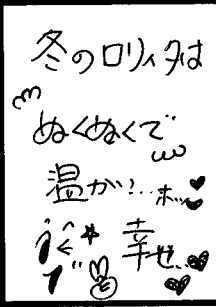 冬のロリィタは
ぬくぬくで
温か!…ホッ♥
幸せ…♥